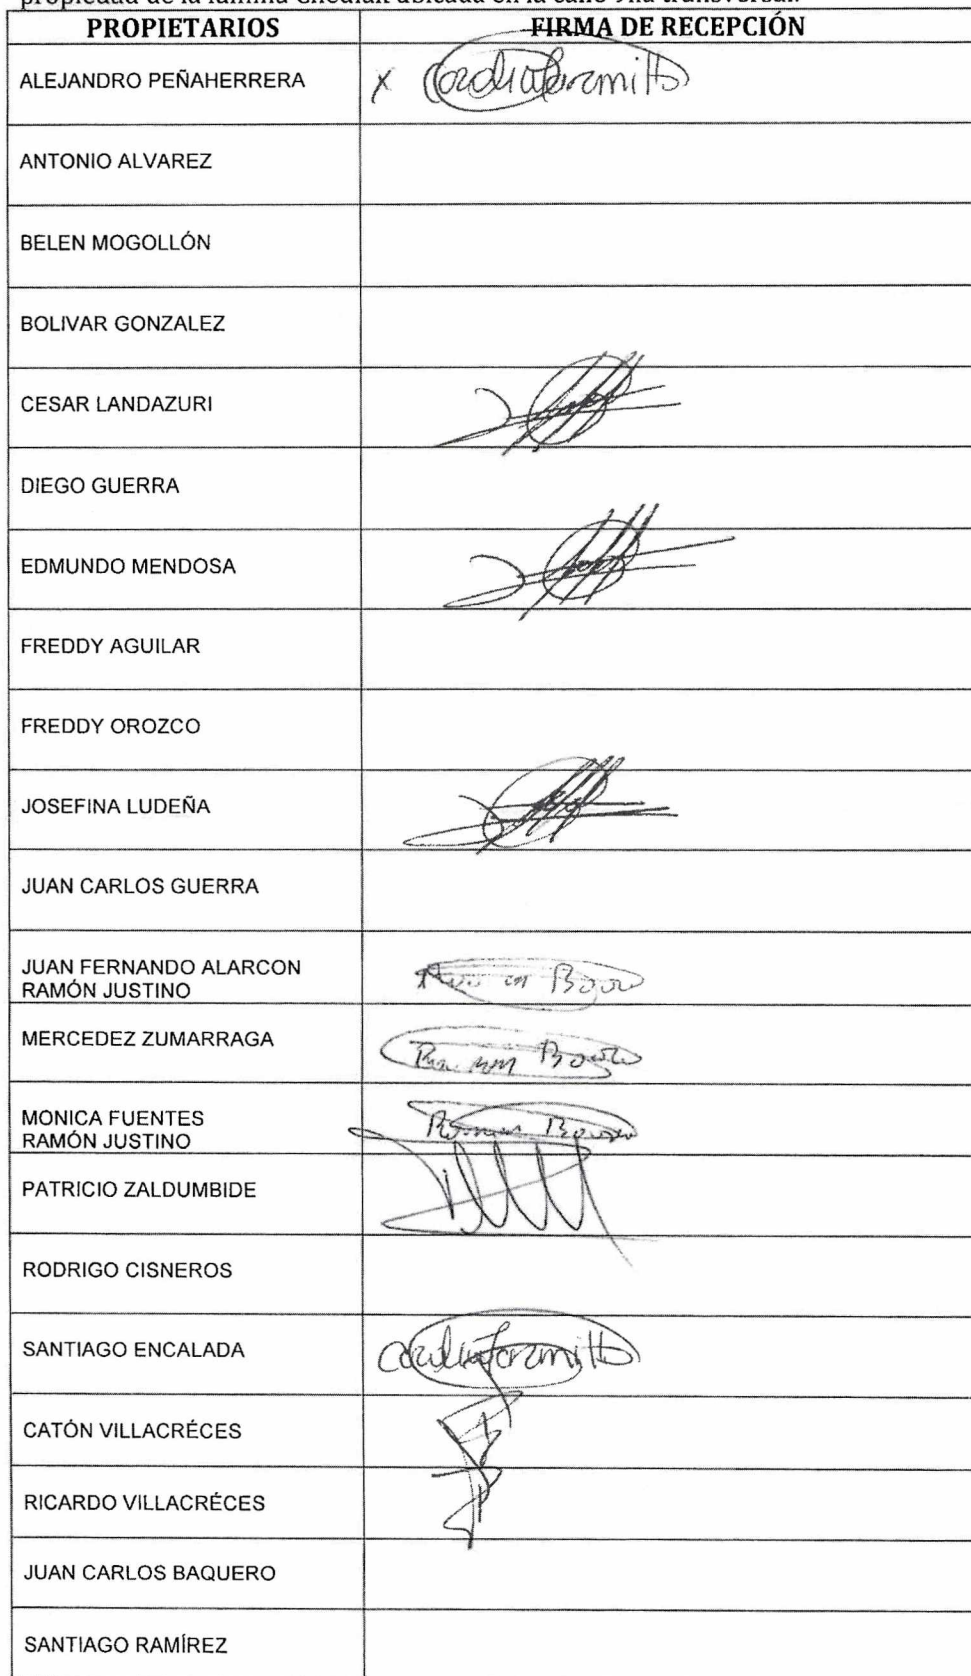 PROPIETARIOS FIRMA DE RECEPCIÓN
ALEJANDRO PEÑAHERRERA X
ANTONIO ALVAREZ
BELEN MOGOLLÓN
BOLIVAR GONZALEZ
CESAR LANDAZURI
DIEGO GUERRA
EDMUNDO MENDOSA
FREDDY AGUILAR
FREDDY OROZCO
JOSEFINA LUDEÑA
JUAN CARLOS GUERRA
JUAN FERNANDO ALARCON
RAMÓN JUSTINO
MERCEDEZ ZUMARRAGA
MONICA FUENTES
RAMÓN JUSTINO
PATRICIO ZALDUMBIDE
RODRIGO CISNEROS
SANTIAGO ENCALADA
CATÓN VILLACRÉCES
RICARDO VILLACRÉCES
JUAN CARLOS BAQUERO
SANTIAGO RAMÍREZ